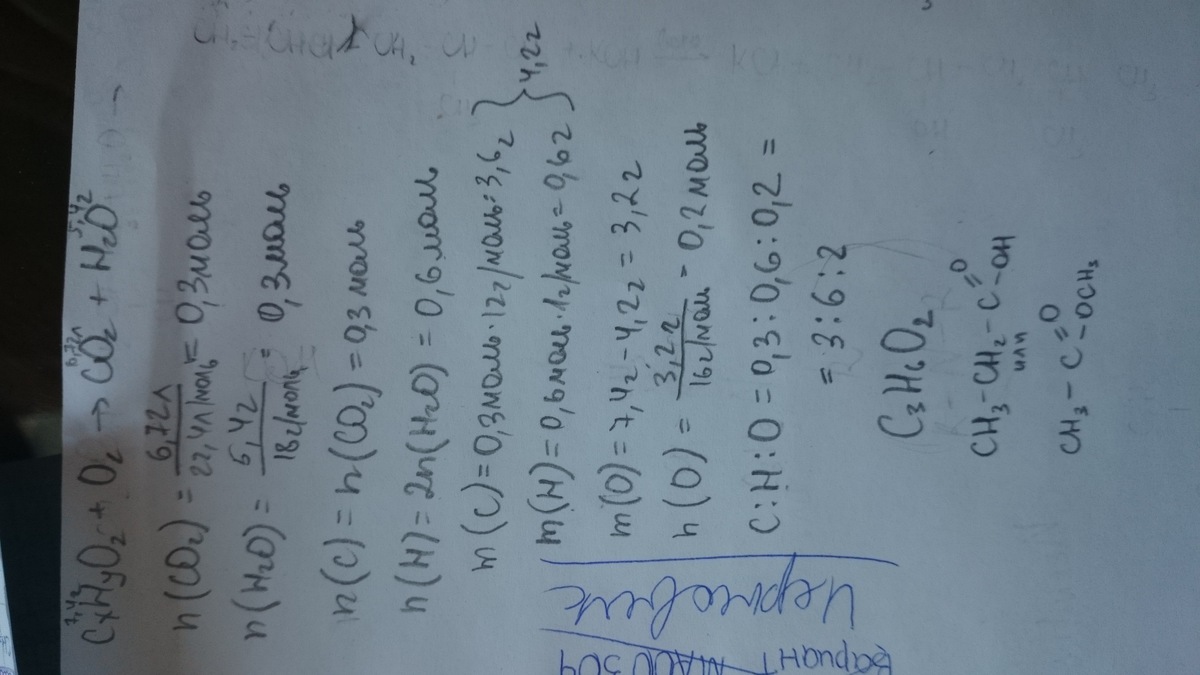 7,4г 6,72л 5,4г
CxHyO2 + O2 → CO2 + H2O
n(CO2) = 6,72л / 22,4л/моль = 0,3моль
n(H2O) = 5,4г / 18г/моль = 0,3моль
n(C) = n(CO2) = 0,3 моль
n(H) = 2n(H2O) = 0,6 моль
m(C) = 0,3моль·12г/моль = 3,6г
m(H) = 0,6моль·1г/моль = 0,6г } 4,2г
m(O) = 7,4г - 4,2г = 3,2г
n(O) = 3,2г / 16г/моль = 0,2моль
C:H:O = 0,3:0,6:0,2 =
= 3:6:2
C3H6O2
CH3-CH2-C=O-OH
или
CH3-C=O-OCH3
Черновик
Вариант